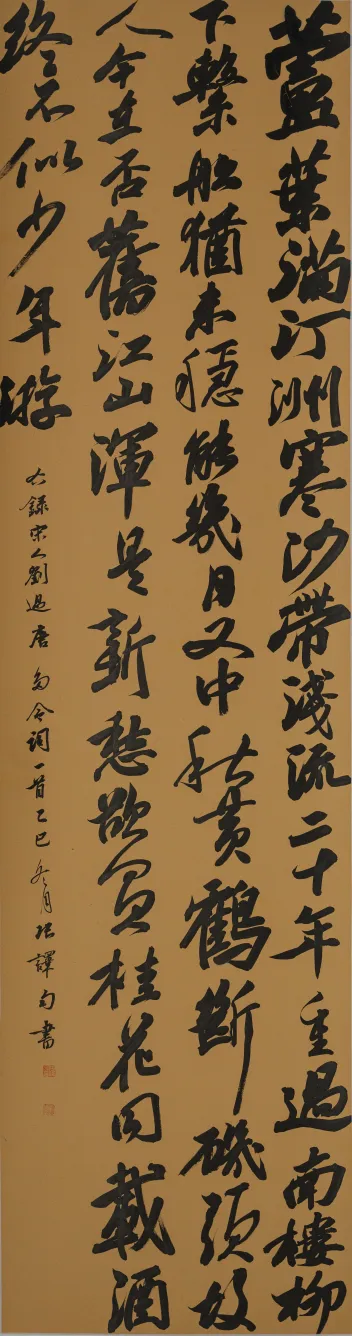 蘆葉滿汀洲寒沙帶淺流二十年重過南樓柳
下繫船猶未穩能幾日又中秋黃鶴斷磯頭故
人今在否舊江山渾是新愁欲買桂花同載酒
終不似少年游
右錄宋人劉過唐多令詞一首乙巳冬月張譯勻書